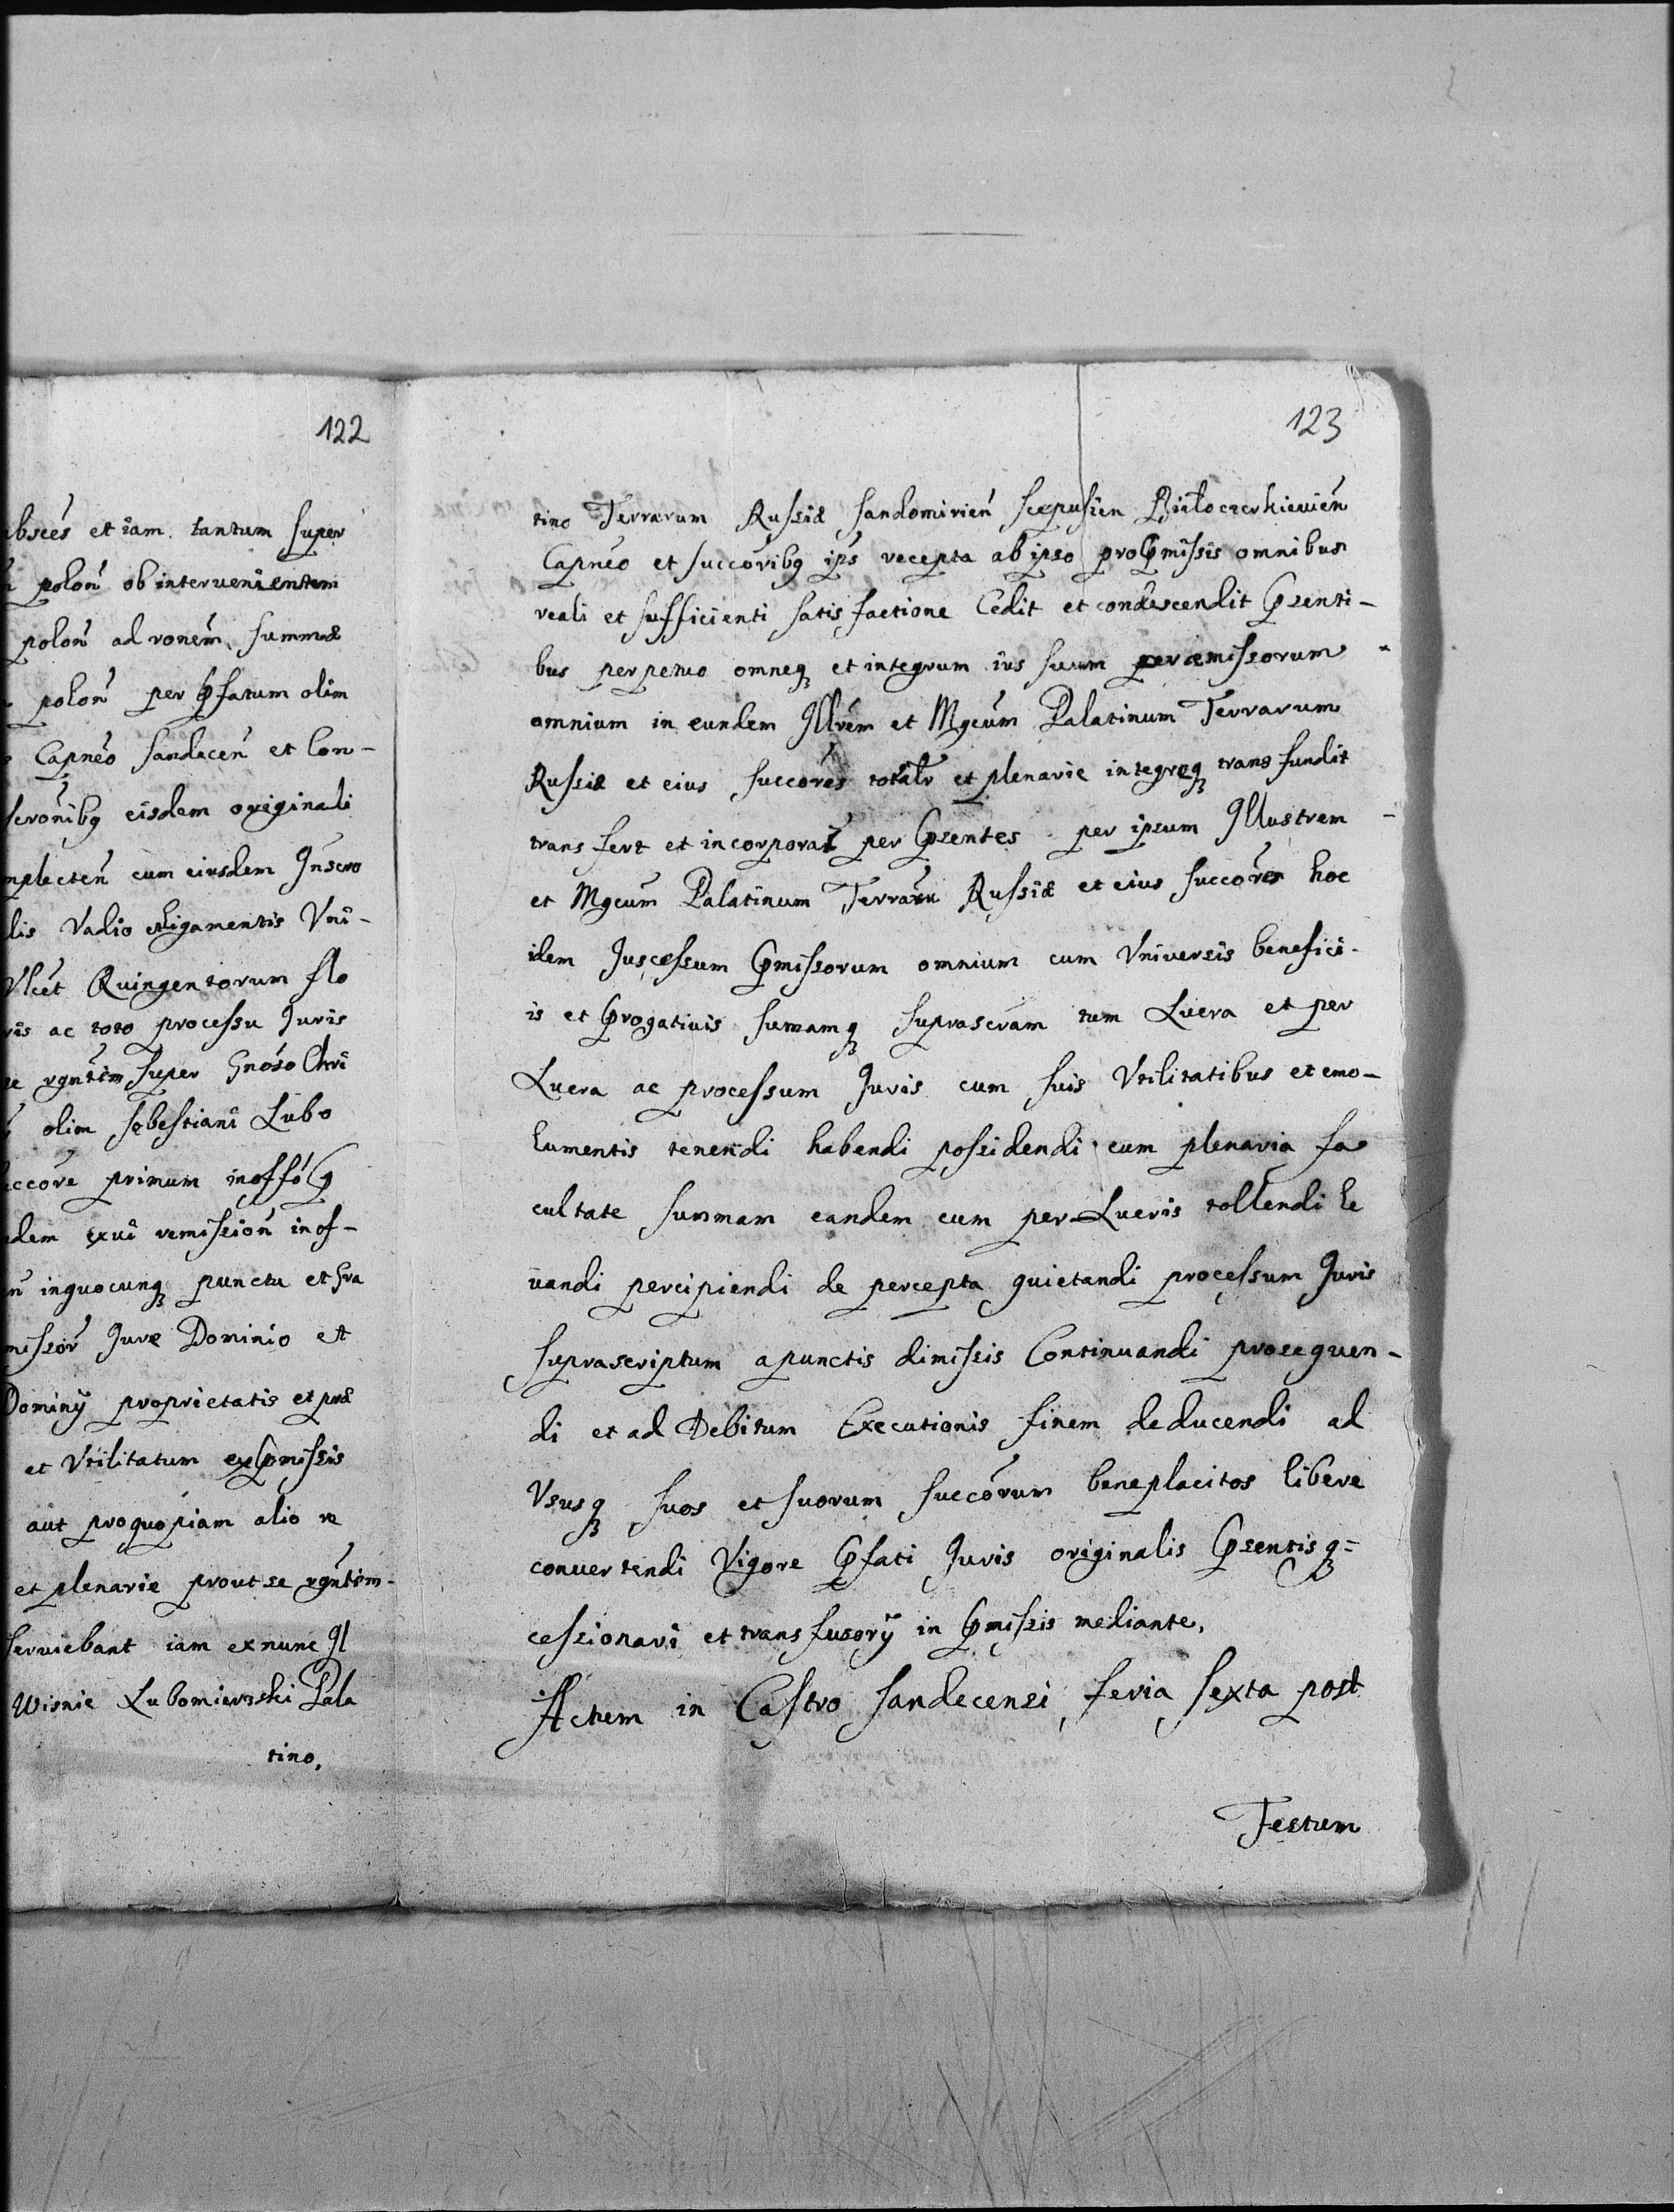 122
absces et iam tantum super
polon ob interuenientem
polon ad ronem summæ
polon per Pfatum olim
Capneo Sandecen et Con-
scronibq eisdem originali
mplecten cum eiusdem Inscro
lis Vadio obligamentis Vni-
Vlcet Quingentorum flo
ris ac toto processu Juris
se rgntem super Gnoso Chri
olim Sebestiani Lubo
ccore primum inoffo
dem remission in of-
n inquocunq punctu et Gra
missor Jure Dominio et
Dominÿ proprietatis et præ
et Vtilitatum ex Pmissis
aut pro quopiam alio re
et plenarie prout se rgntem-
seruiebant iam ex nunc Jl
Wisnie Lubomierski Pala
tino,
123
tino Terrarum Russiæ Sandomirien Scepusien Białocerkieuien
Capneo et succoribq ips recepta ab ipso pro Pmissis omnibus
reali et sufficienti satisfactione Cedit et condescendit Psenti-
bus perpetuo omneq et integrum ius suum peræmissorum
omnium in eundem Jllrem et Mgcum Palatinum Terrarum
Russiæ et eius succores totalr et plenarie integreq transfundit
transfert et incorporat per Psentes per ipsum Jllustrem
et Mgcum Palatinum Terraru Russiæ et eius succores hoc
idem Juscessum Pmissorum omnium cum Vniuersis benefici-
is et Progatiuis sumamq suprascram tum Lucra et per
Lucra ac processum Juris cum suis Vtilitatibus et emo-
lumentis tenendi habendi possidendi cum plenaria fa
cultate summam eandem cum per Lucris tollendi le
uandi percipiendi de percepta quietandi processum Juris
suprascriptum a punctis dimissis Continuandi prosequen-
di et ad Debitum Executionis finem deducendi ad
Vsusq suos et suorum succorum beneplacitos libere
conuertendi Vigore Pfati Juris originalis Psentisq=
cessionari et transfusorÿ in Pmissis mediante,
Actum in Castro Sandecensi, feria sexta post
Festum